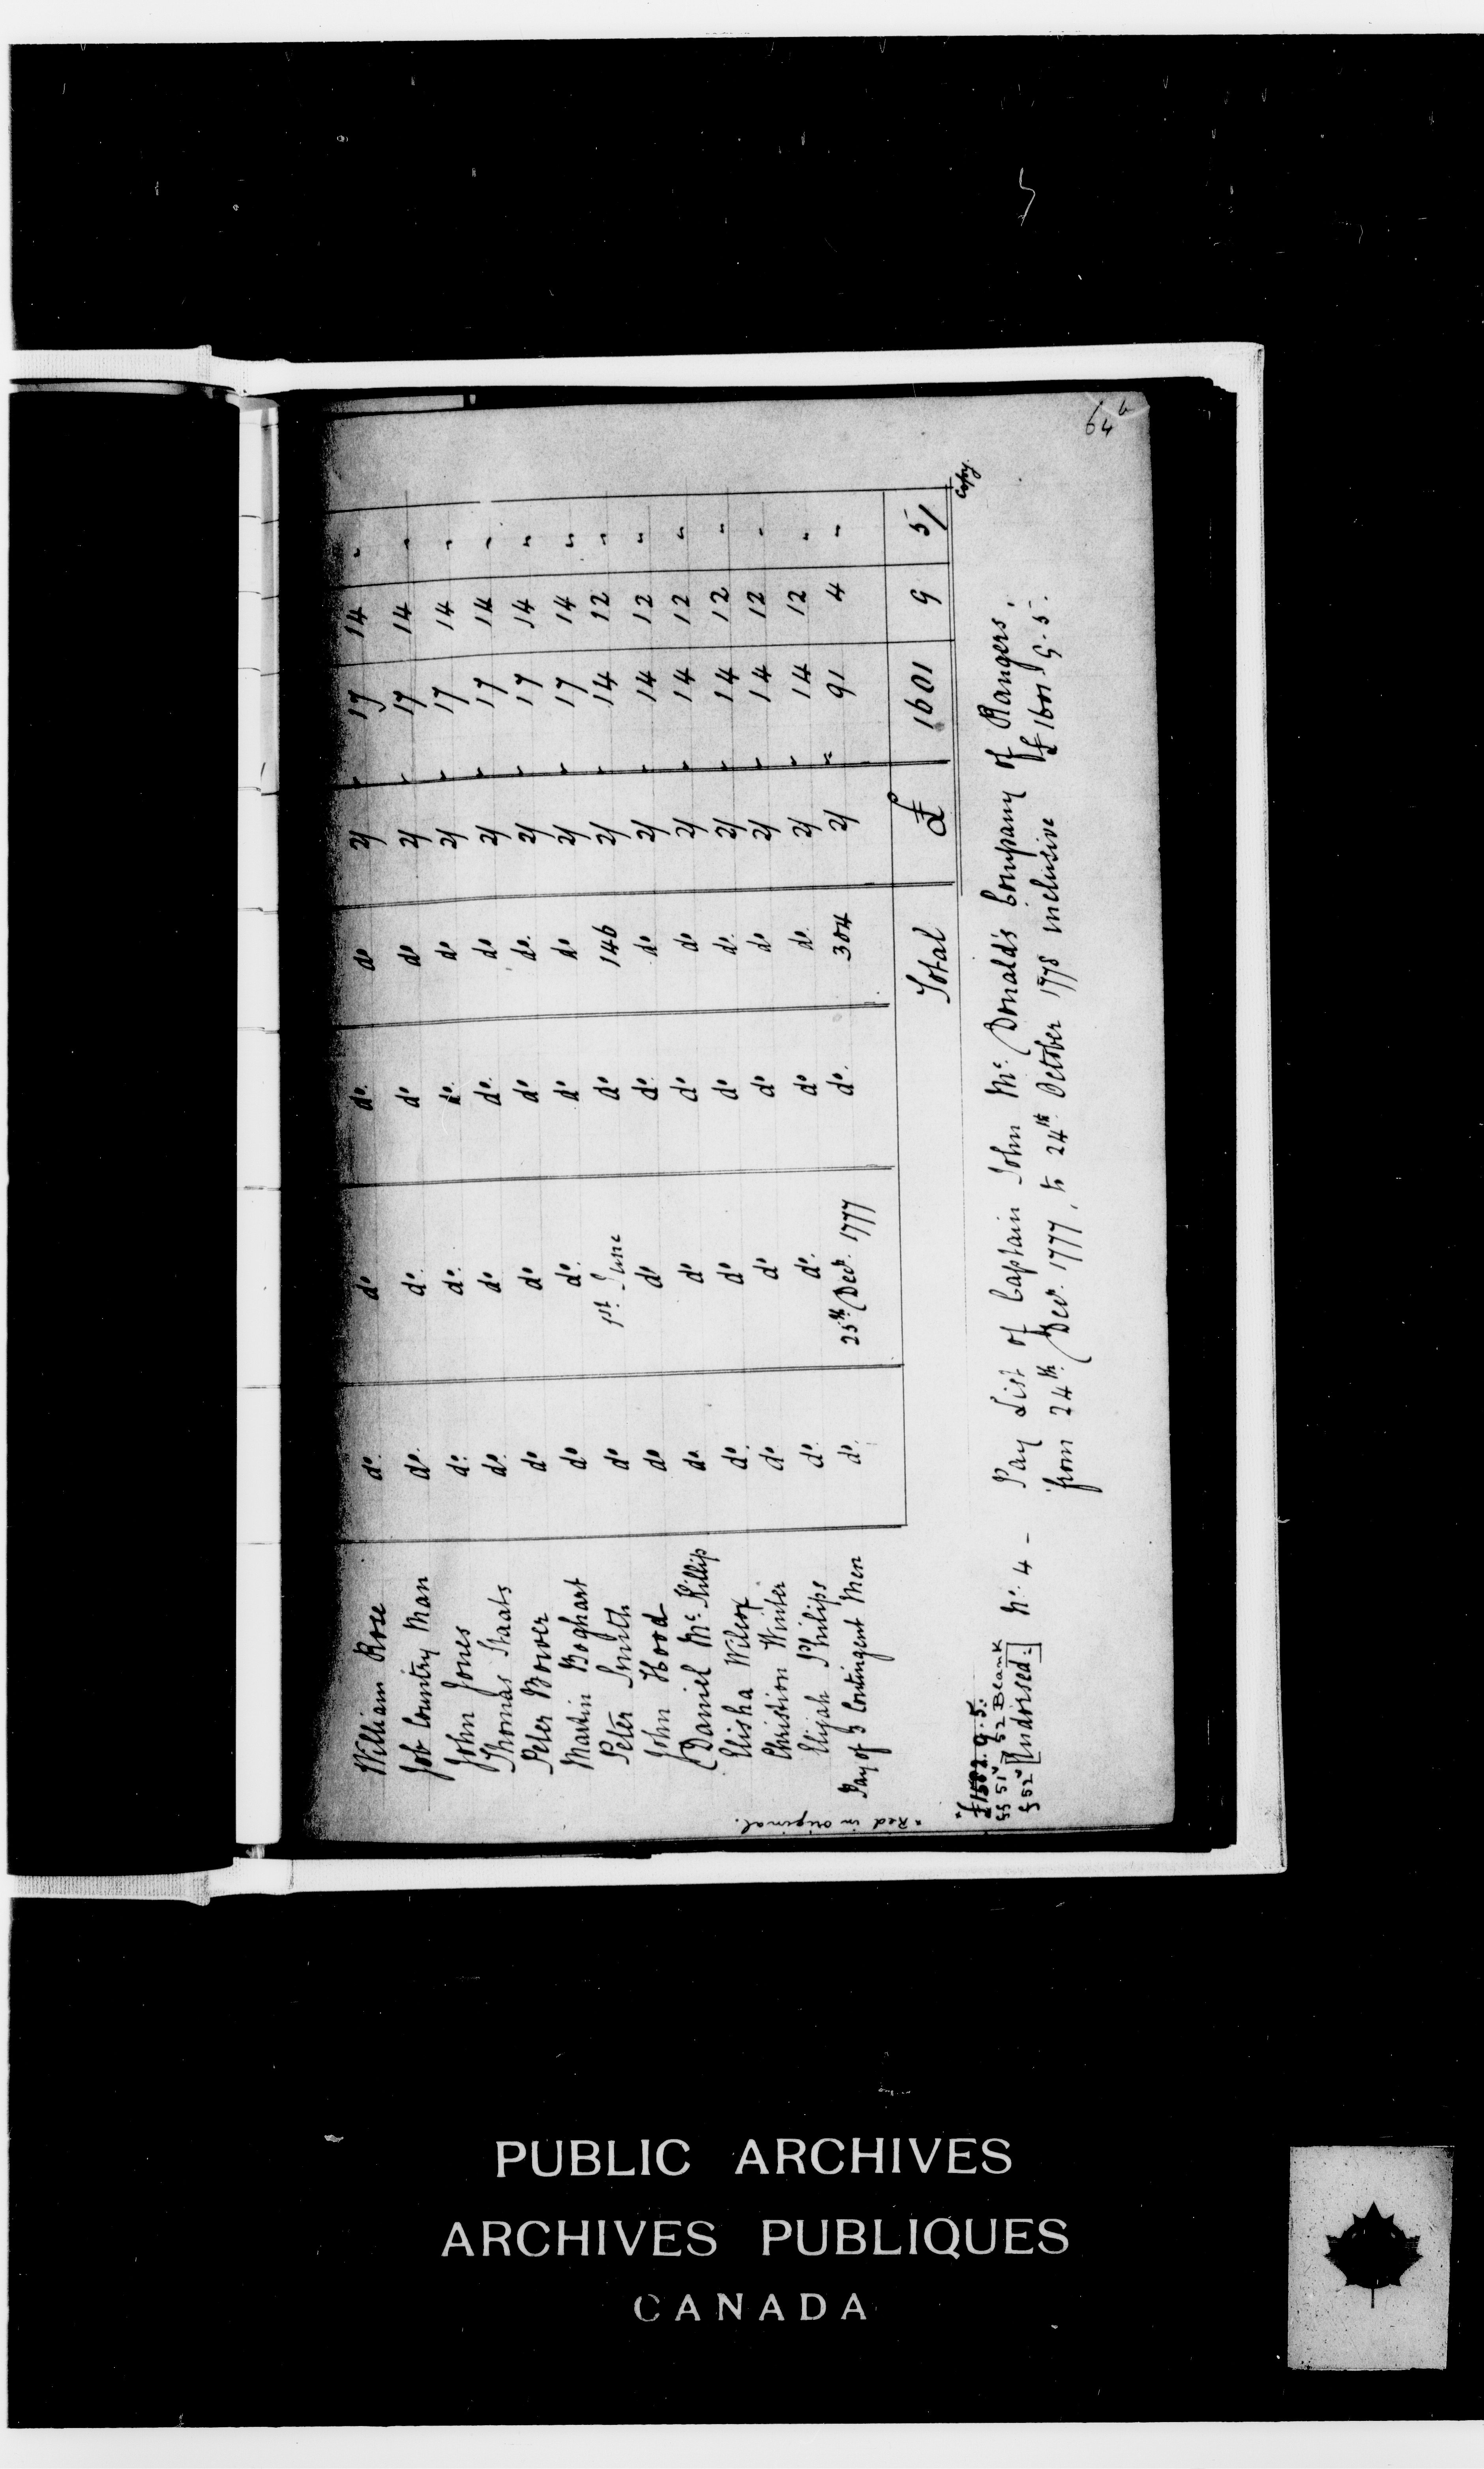 64 b
William Rose d° d° d° d° 2/ " 17 14 "
Job Country Man d° d° d° d° 2/ " 17 14 "
John Jones d° d° d° d° 2/ " 17 14 "
Thomas Staats d° d° d° d° 2/ " 17 14 "
Peter Bower d° d° d° d° 2/ " 17 14 "
Martin Boghart d° d° d° d° 2/ " 17 14 "
Peter Smith d° 1st June d° 146 2/ " 14 12 "
John Hood d° d° d° d° 2/ " 14 12 "
Daniel Mc Killip d° d° d° d° 2/ " 14 12 "
Elisha Wilcox d° d° d° d° 2/ " 14 12 "
Christion Winter d° d° d° d° 2/ " 14 12 "
Elijah Philips d° d° d° d° 2/ " 14 12 "
Pay of 3 Contingent Men d° 25th Decr. 1777 d° 304 2/ " 91 4 "
Total £ 1601 9 5/
Copy.
" Red in original.
"£1582.9.5.
ff 51v 52 Blank
f 52v [Indorsed:] N°. 4 – Pay List of Captain John Mc Donald's Company of Rangers.
from 24th Decr. 1777, to 24th October 1778 inclusive £1601.9.5.
PUBLIC ARCHIVES
ARCHIVES PUBLIQUES
CANADA